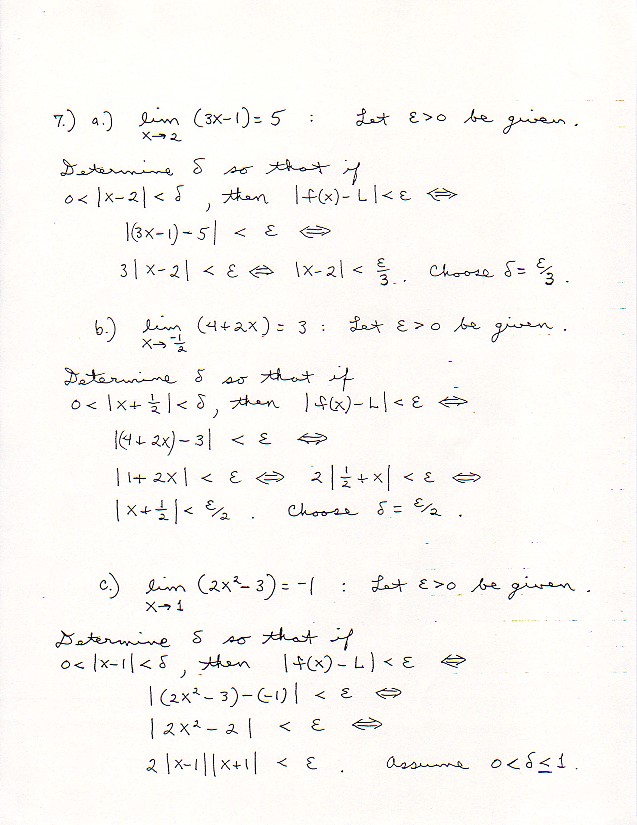 7.) a.) lim (3x-1) = 5 : Let ε>0 be given.
x→2
Determine δ so that if
0 < |x-2| < δ , then |f(x)-L| < ε ⇔
|(3x-1)-5| < ε ⇔
3|x-2| < ε ⇔ |x-2| < ε/3 . Choose δ = ε/3 .
b.) lim (4+2x) = 3 : Let ε>0 be given.
x→-1/2
Determine δ so that if
0 < |x+1/2| < δ , then |f(x)-L| < ε ⇔
|(4+2x)-3| < ε ⇔
|1+2x| < ε ⇔ 2|1/2+x| < ε ⇔
|x+1/2| < ε/2 . Choose δ = ε/2 .
c.) lim (2x²-3) = -1 : Let ε>0 be given.
x→1
Determine δ so that if
0 < |x-1| < δ , then |f(x)-L| < ε ⇔
|(2x²-3)-(-1)| < ε ⇔
|2x²-2| < ε ⇔
2|x-1||x+1| < ε . Assume 0<δ≤1 .